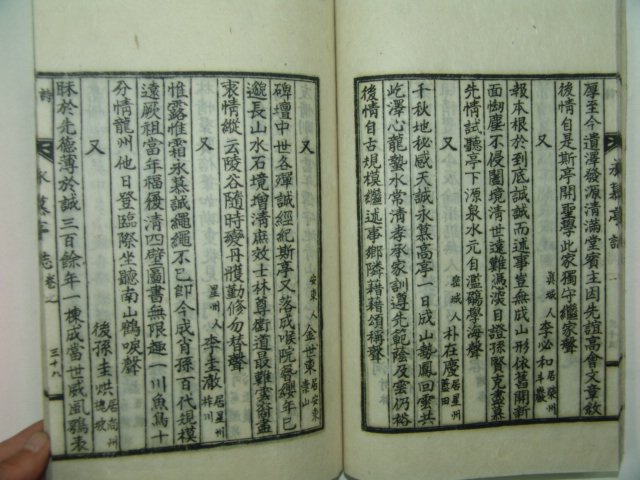 厚至今遺澤發源清滿堂賓主因先誼高會文章敘
後情自是斯亭開聖學此家獨守繼家聲
又 眞城人李必和居榮州斗巖
報本根於到底誠誠而述事豈無成山形依舊開新
面蜩塵不侵闢境清世遠難憑淚目證孫賢克盡慕
先情試聽亭下源泉水元自濫觴學海聲
又 密城人朴在慶居星州藍田
千秋地秘感天誠永慕高亭一日成山勢鳳回雲共
屹澤心龍蟄水常清孝承家訓導先範陰及雲仍裕
後情自古規模繼述事鄕隣藉藉頌稱聲
又 安東人金世東居安東素山
碑壇中世各殫誠經紀斯亭又落成喉院尋纓年已
邈長山水石境增清庶效士林尊衛道最難雲裔盡
衷情縱云陵谷隨時變丹雘勤修勿替聲
又 星州人李圭澈居星州
惟露惟霜永慕誠繩繩不已卽今成肖孫百代規模
遠厥祖當年福優清四壁圖書無限趣一川魚鳥十
分情龍州他日登臨際坐聽南山鶴唳聲
又 後孫圭烘居尚州
昧於先德薄於誠三百餘年一棟成當世威風鴞表
詩
永慕亭誌卷一
三十八